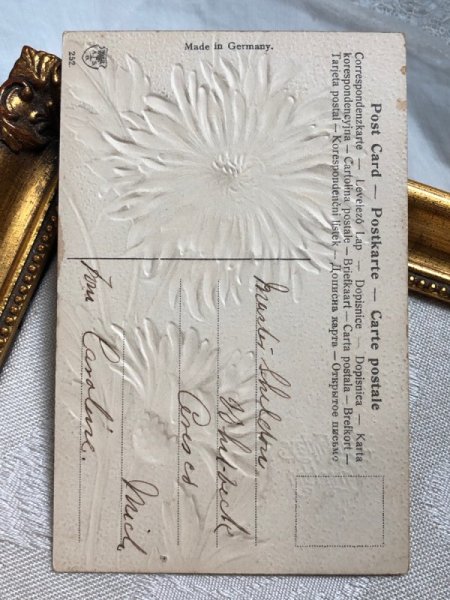 Made in Germany.
252
Post Card — Postkarte — Carte postale
Correspondenzkarte — Levelező Lap — Dopisnice — Dopisnica — Karta
korespondencyjna — Cartolina postale — Briefkaart — Carta postala — Brefkort —
Tarjeta postal — Korespondenční lístek — Дописна карта — Открытое письмо
Master Sheldon
Whitbeck
Mich
from Caroline.